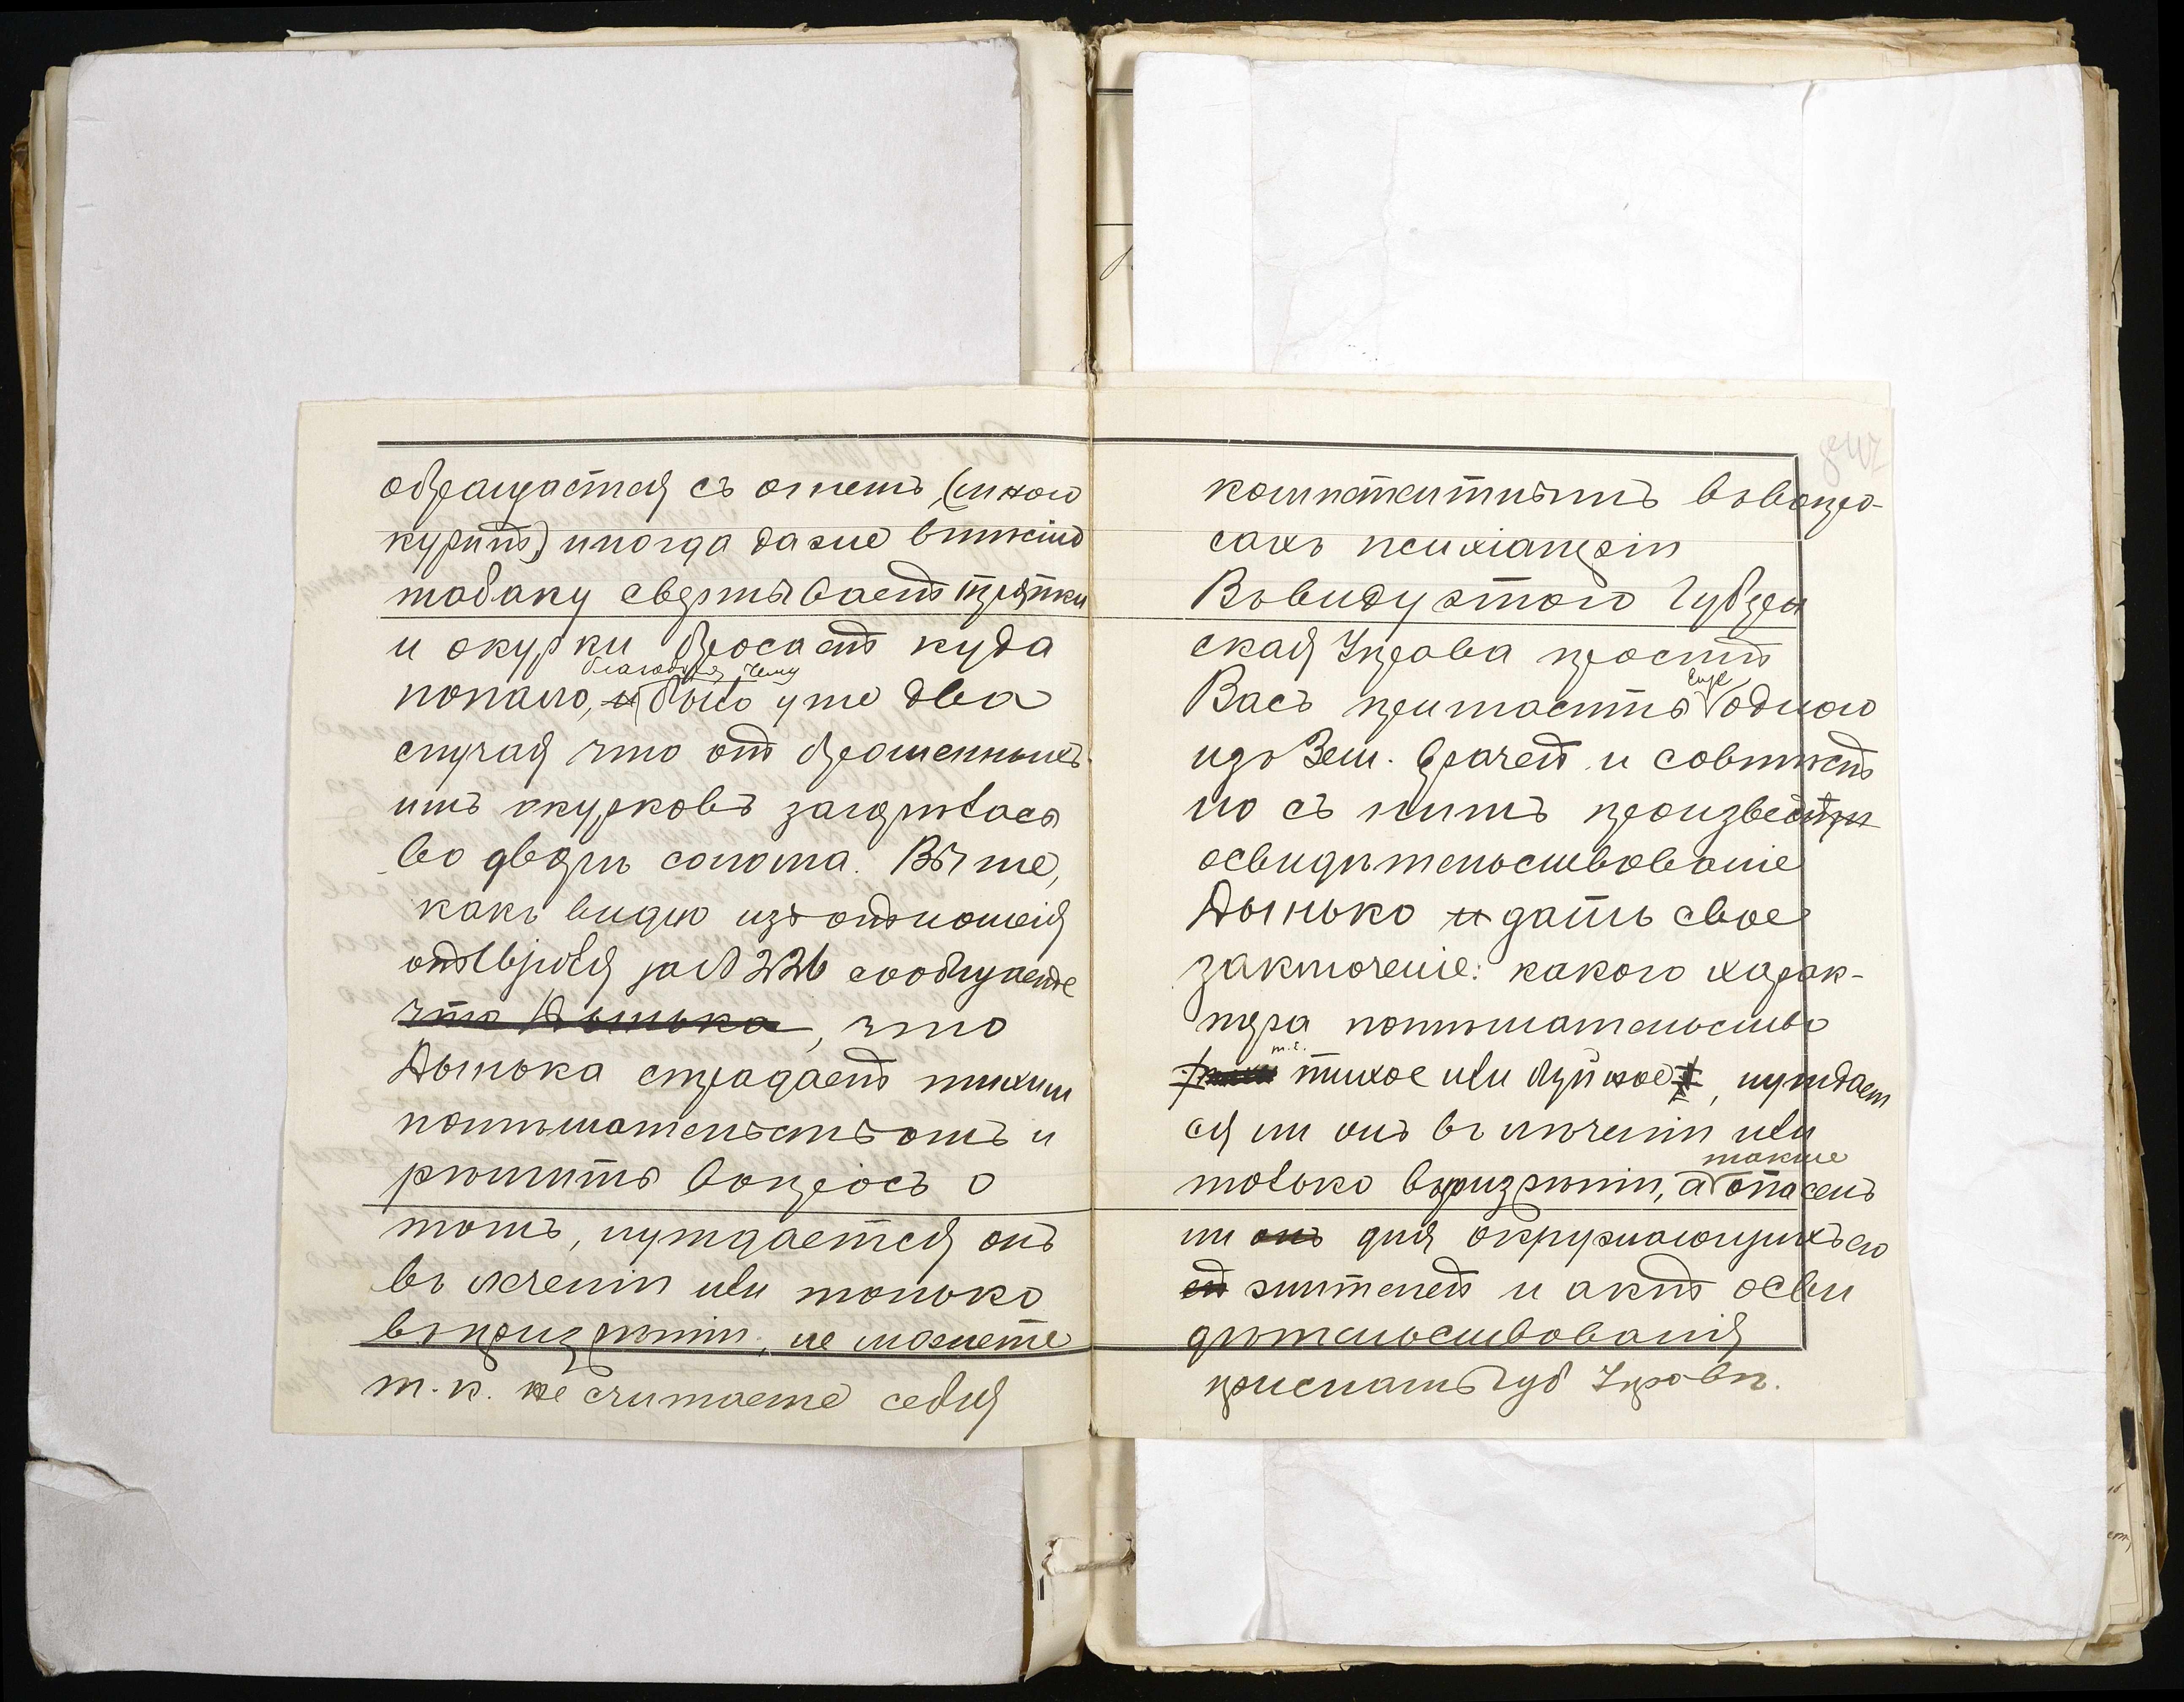 обращается съ огнемъ, (много
куритъ) иногда даже вмѣсто
табаку свертываетъ тряпки
и окурки бросаетъ куда
попало, благодаря чему
было уже два
случая что отъ брошенныхъ
имъ окурковъ загорѣлась
во дворѣ солома. Вы же,
какъ видно изъ отношенія
отъ Апрѣля за № 226 сообщаете
что Дынька, что
Дынька страдаетъ тихим
помѣшательствомъ и
рѣшить вопросъ о
томъ, нуждается онъ
въ леченіи или только
въ призрѣніи, не можете
т.к. не считаете себя
компетентнымъ въ вопро-
сахъ психіатріи
Въ виду этого Губрев
ская Управа проситъ
Васъ пригласить еще одного
изъ Зем. врачей и совмѣст
но съ нимъ произвести
освидѣтельствованіе
Дынько и дать свое
заключеніе: какого харак-
тера помѣшательство
т.е. тихое или буйное, нуждает
ся ли онъ въ лѣченіи или
только въ призрѣніи, а также опасенъ
ли онъ для окружающихъ его
жителей и актъ осви
дѣтельствованія
прислать Губ Управѣ.